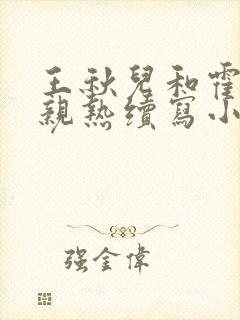 王秋兒和霍
親熱續寫小
强金偉